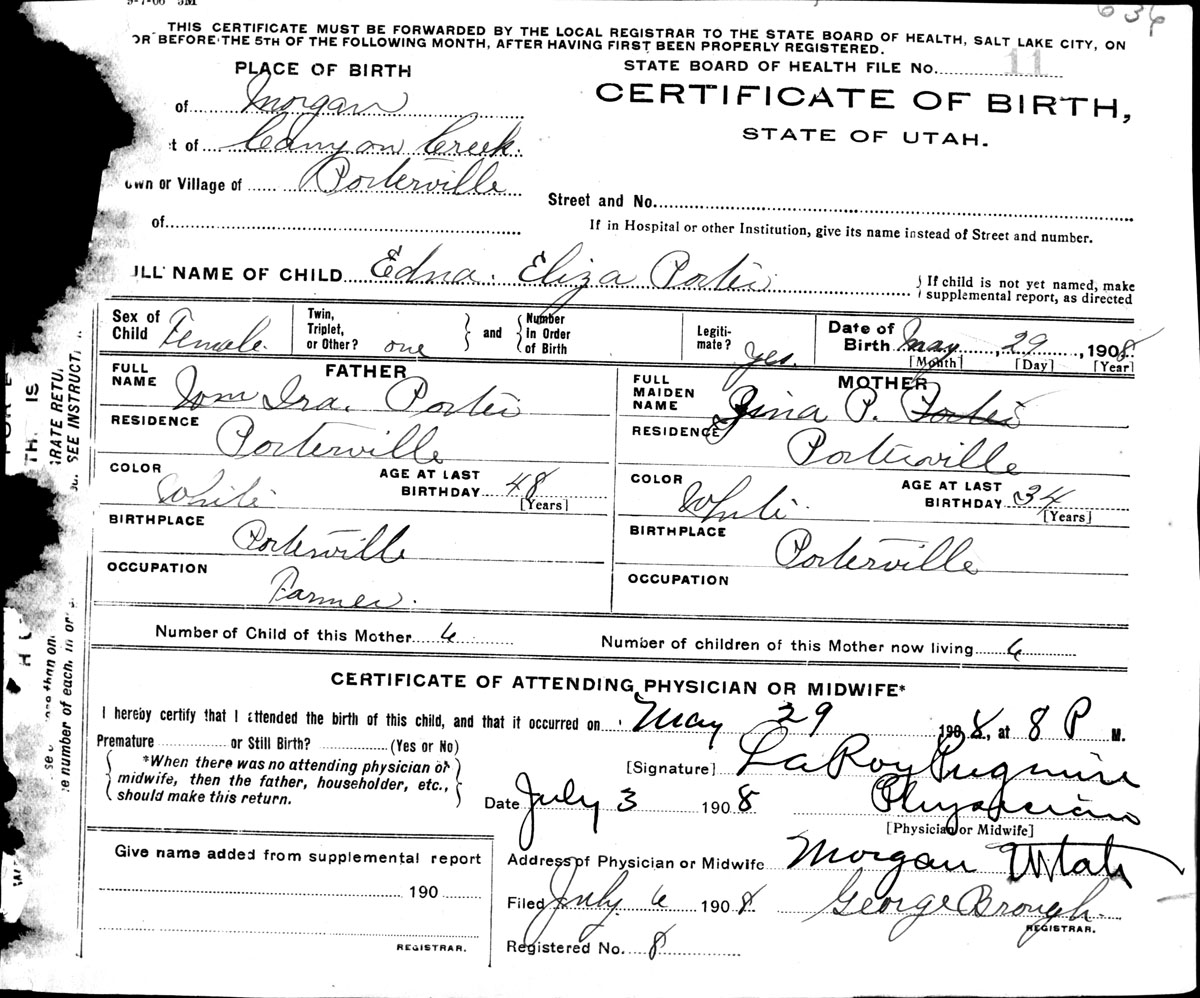 9-7-06 3M
636
THIS CERTIFICATE MUST BE FORWARDED BY THE LOCAL REGISTRAR TO THE STATE BOARD OF HEALTH, SALT LAKE CITY, ON
OR BEFORE THE 5TH OF THE FOLLOWING MONTH, AFTER HAVING FIRST BEEN PROPERLY REGISTERED.
PLACE OF BIRTH
STATE BOARD OF HEALTH FILE No. 11
of Morgan
CERTIFICATE OF BIRTH,
STATE OF UTAH.
t of Canyon Creek.
own or Village of Porterville
Street and No.
of
If in Hospital or other Institution, give its name instead of Street and number.
ULL NAME OF CHILD Edna. Eliza Porter
} If child is not yet named, make
supplemental report, as directed
Sex of Child Female.
Twin, Triplet, or Other? one
and
Number in Order of Birth
Legiti-mate? yes.
Date of Birth May, 29, 1908
[Month] [Day] [Year]
FATHER
FULL NAME Ira. Porter
RESIDENCE Porterville
COLOR White
AGE AT LAST BIRTHDAY 48
[Years]
BIRTHPLACE
Porterville
OCCUPATION
Farmer.
MOTHER
FULL MAIDEN NAME P. Porter
RESIDENCE Porterville
COLOR White.
AGE AT LAST BIRTHDAY 34
[Years]
BIRTHPLACE
Porterville
OCCUPATION
Number of Child of this Mother 6
Number of children of this Mother now living 6
CERTIFICATE OF ATTENDING PHYSICIAN OR MIDWIFE*
I hereby certify that I attended the birth of this child, and that it occurred on May 29 1908, at 8 P M.
Premature or Still Birth? (Yes or No)
*When there was no attending physician or
midwife, then the father, householder, etc.,
should make this return.
[Signature] LaRoy Pugmire
Date July 3 1908
Physician
[Physician or Midwife]
Give name added from supplemental report
190
REGISTRAR.
Address of Physician or Midwife Morgan Utah
Filed July 6 1908 George Brough.
REGISTRAR.
Registered No. 8